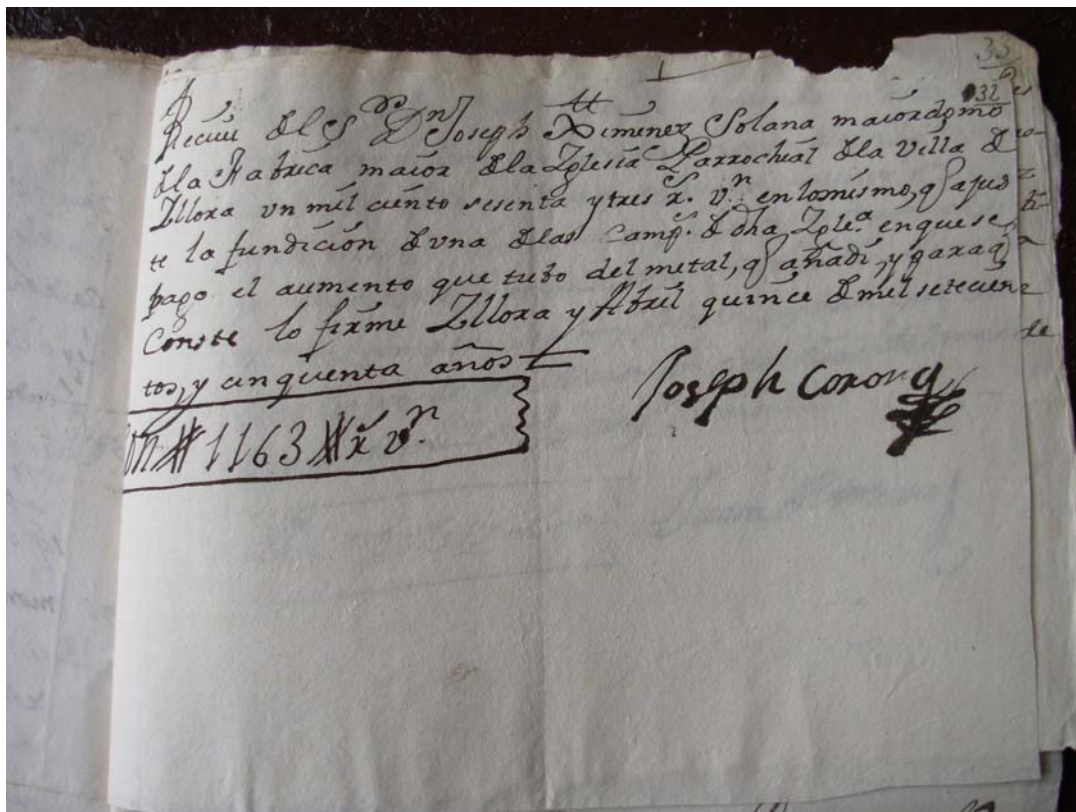 33
32
Reciui del S.r Dn Joseph Ximinez Solana maiordomo
dla Fabrica maior dla Iglesia Parrochial dla villa d
Illora vn mil ciento sesenta y tres r.s v.n en losmismo, q ajus
te la fundición d vna dlas Camp.s d dha Igle.a enquese
pago el aumento que tubo del metal, q añadi, y paraq
Conste lo firme Illora y Abril quince d mil setecien
tos, y cinquenta años
Joseph Corona
Son # 1163 # r.s v.n